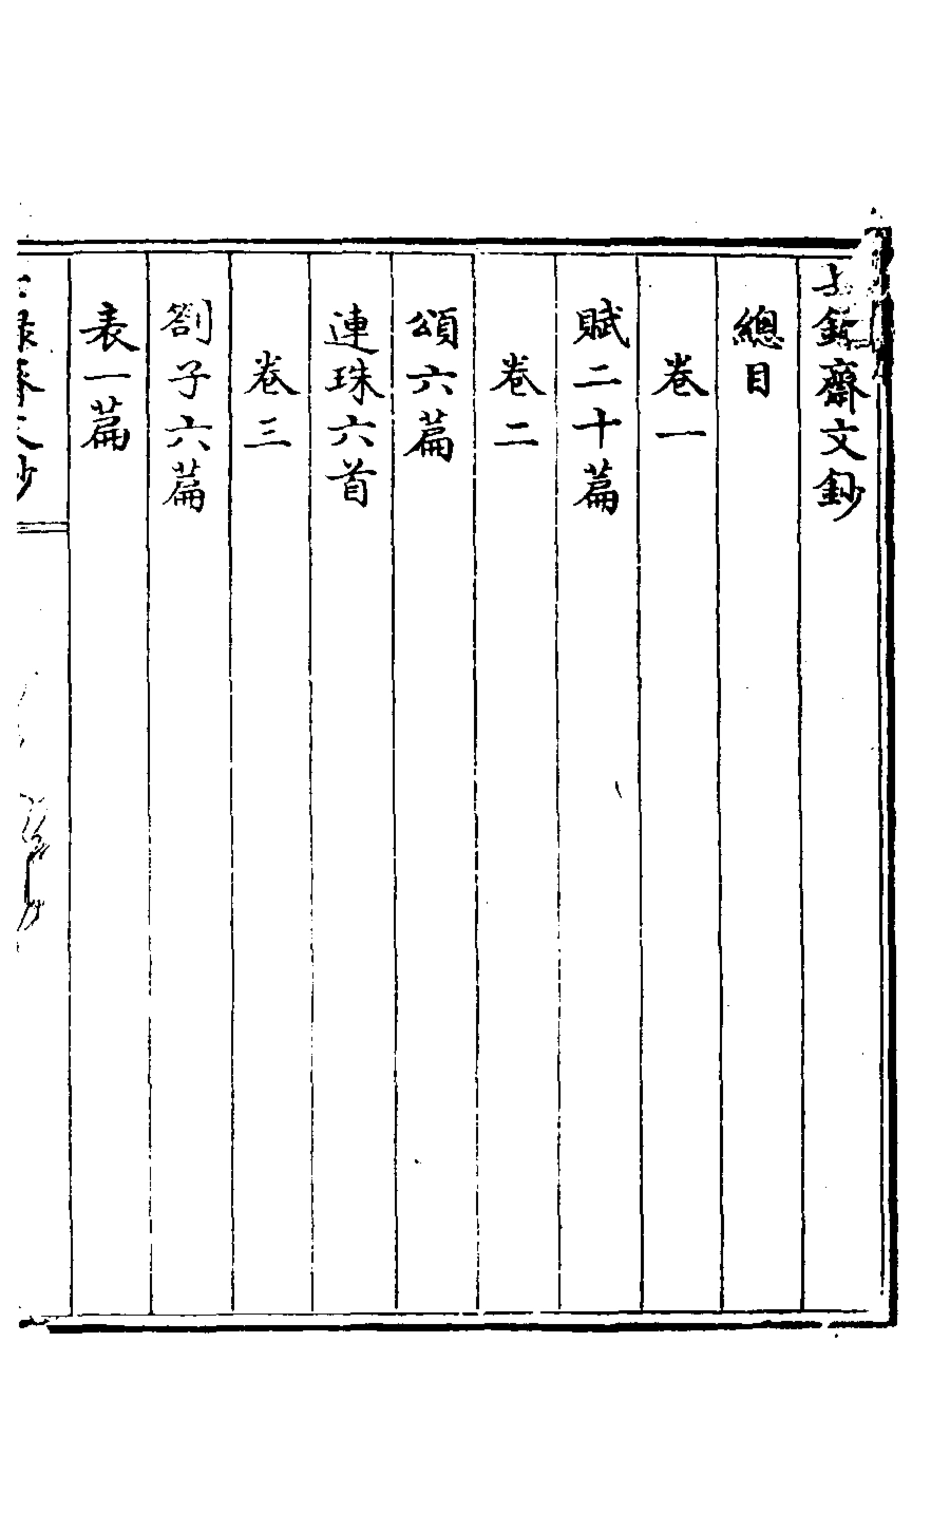 齋文鈔
總目
卷一
賦二十篇
卷二
頌六篇
連珠六首
卷三
劄子六篇
表一篇